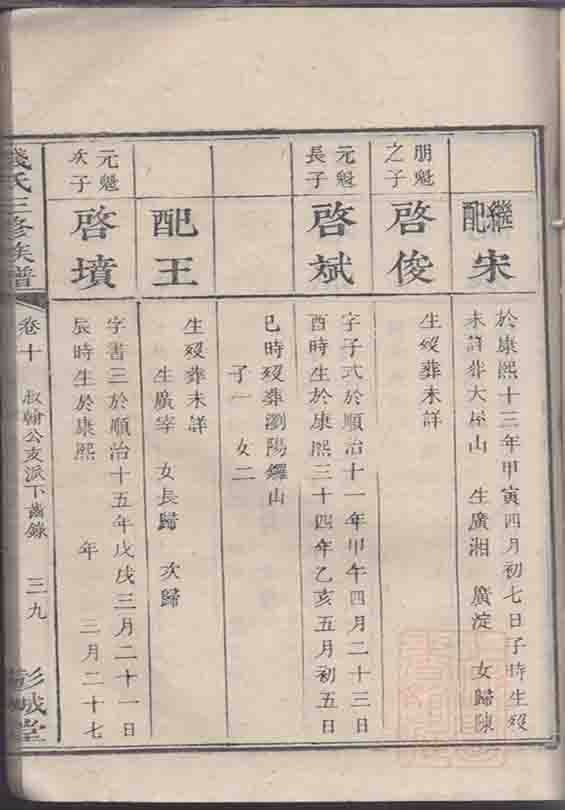 繼配宋
於康熙十三年甲寅四月初七日子時生歿
未詳葬大屋山 生廣湘 廣淀 女歸陳
朋魁之子
啓俊
生歿葬未詳
元魁長子
啓斌
字子式於順治十一年甲午四月二十三日
酉時生於康熙三十四年乙亥五月初五日
巳時歿葬瀏陽鑼山
子一 女二
配王
生歿葬未詳
生廣宰 女長歸 次歸
元魁次子
啓墳
字書三於順治十五年戊戌三月二十一日
辰時生於康熙 年 二月二十七
錢氏三修族譜
卷十 叔翰公支派下齒錄 三九
彭城堂